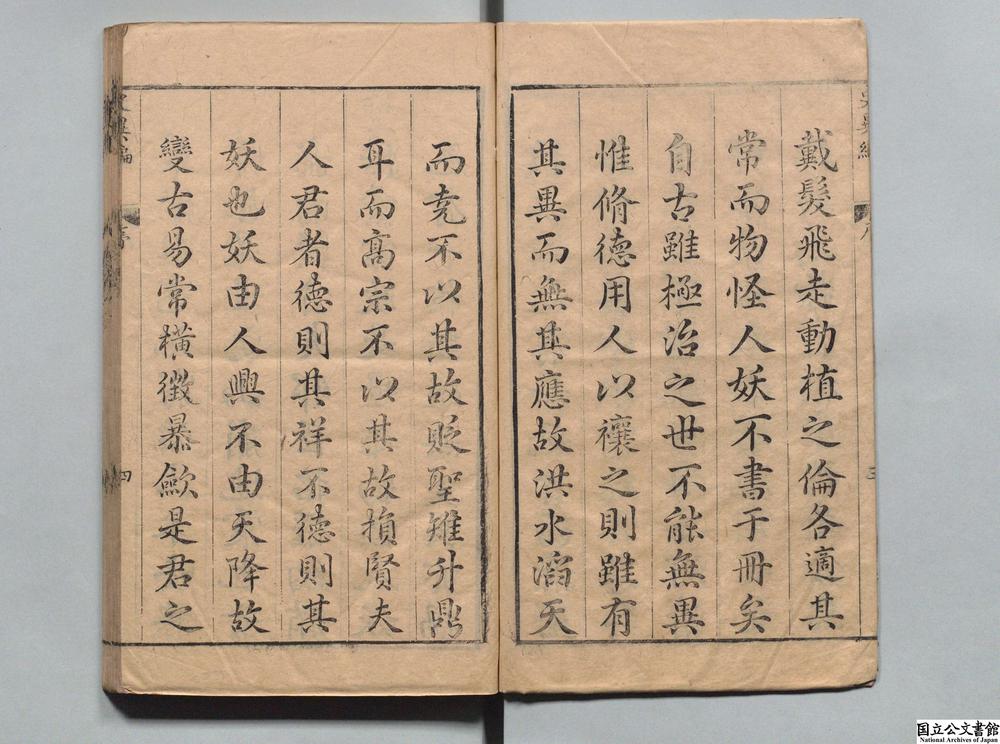 戴髮飛走動植之倫各適其
常而物怪人妖不書于冊矣
自古雖極治之世不能無異
惟脩德用人以禳之則雖有
其異而無其應故洪水滔天
而堯不以其故貶聖雉升鼎
耳而高宗不以其故損賢夫
人君者德則其祥不德則其
妖也妖由人興不由天降故
變古易常橫徵暴歛是君之
四
国立公文書館
National Archives of Japan